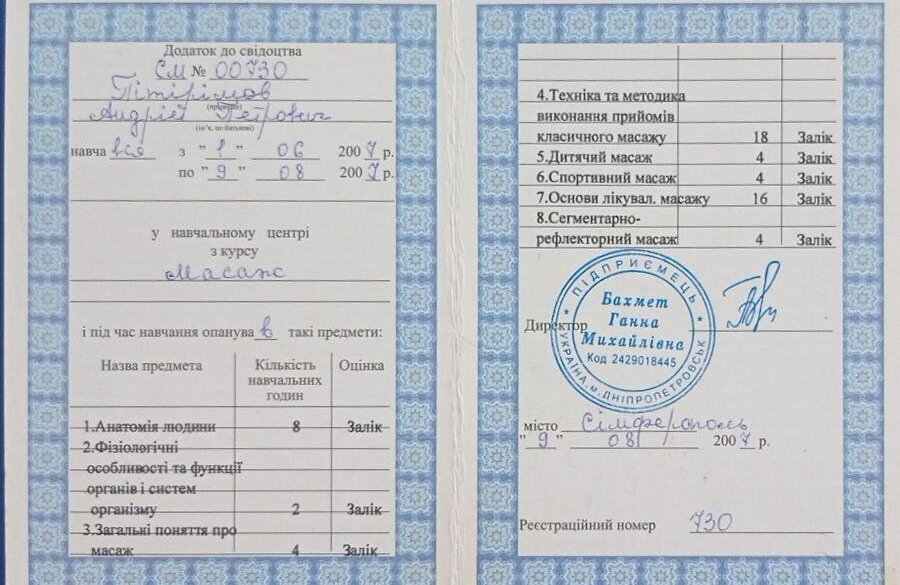 Додаток до свідоцтва
СМ № 00730
Пітірімов
(прізвище)
Андрій Петрович
(ім'я, по батькові)
навча вся з "1" 06 2007 р.
по "9" 08 2007 р.
у навчальному центрі
з курсу
Масаж
і під час навчання опанува в такі предмети:
Назва предмета Кількість навчальних годин Оцінка
1.Анатомія людини 8 Залік
2.Фізіологічні
особливості та функції
органів і систем
організму 2 Залік
3.Загальні поняття про
масаж 4 Залік
4.Техніка та методика
виконання прийомів
класичного масажу 18 Залік
5.Дитячий масаж 4 Залік
6.Спортивний масаж 4 Залік
7.Основи лікувал. масажу 16 Залік
8.Сегментарно-
рефлекторний масаж 4 Залік
ПІДПРИЄМЕЦЬ
Бахмет
Ганна
Михайлівна
Код 2429018445
УКРАЇНА, м. ДНІПРОПЕТРОВСЬК
Директор
місто Сімферополь
"9" 08 2007 р.
Реєстраційний номер 730